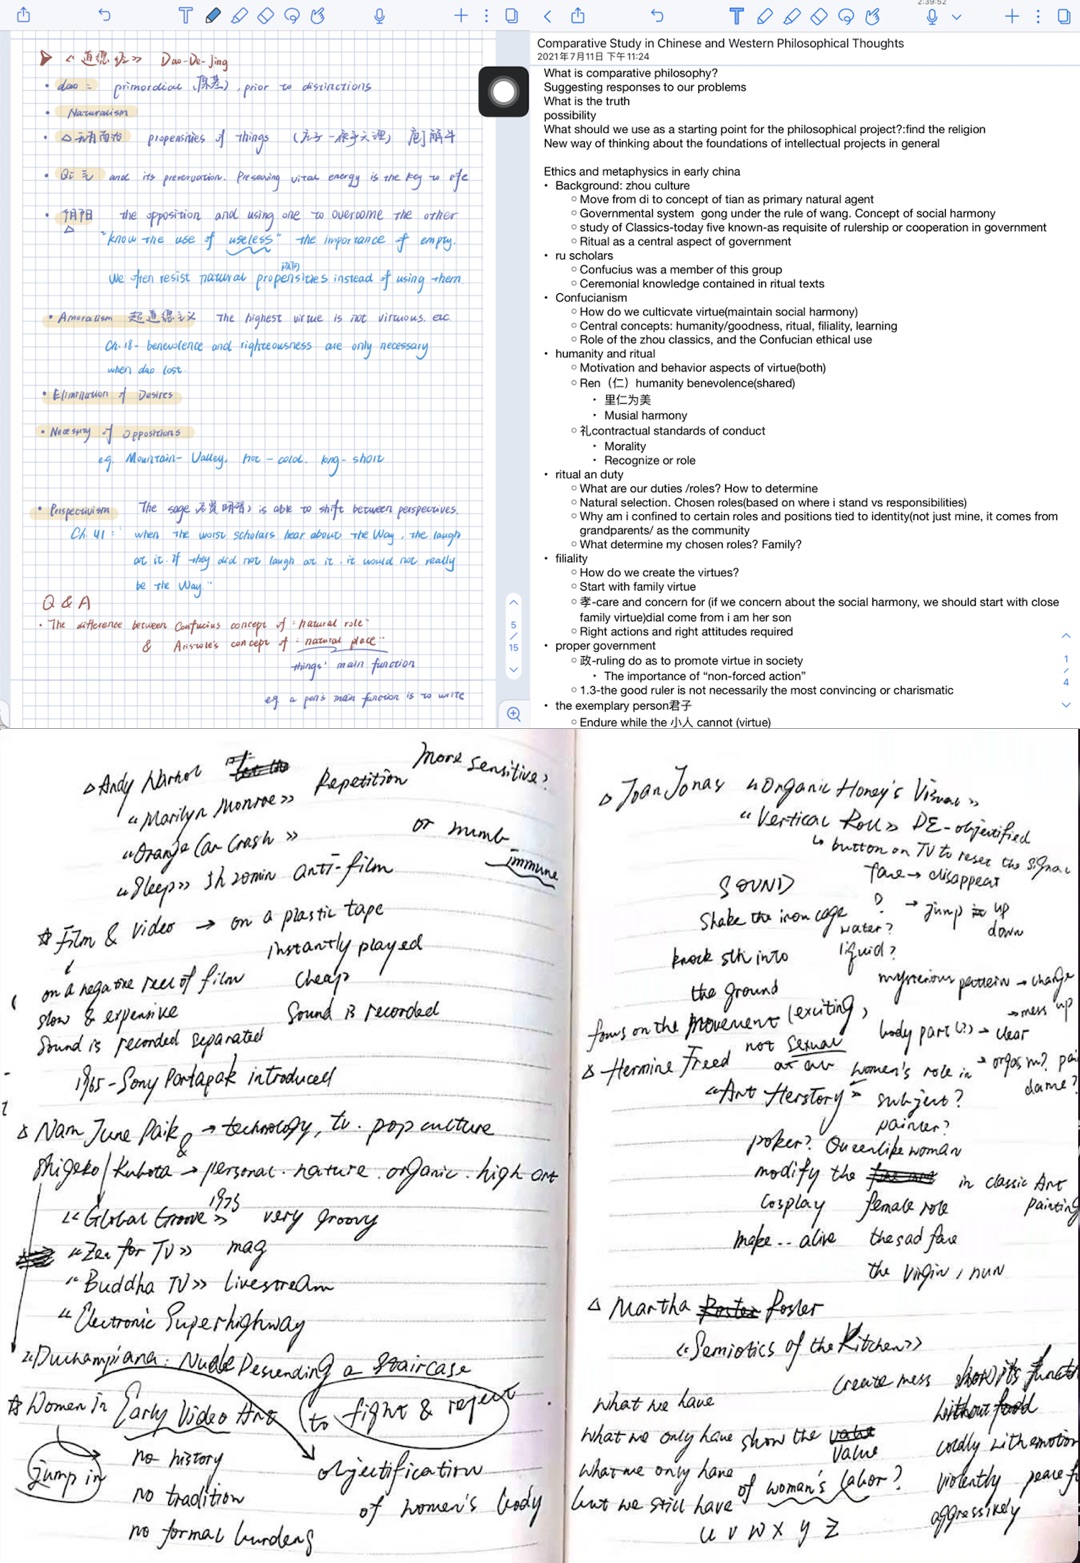 ➤ 《道德经》 Dao-De-Jing
• dao : primordial (原基), prior to distinctions
• Naturalism
propensities of things
• Qi 气 and its preservation. Preserving vital energy is the key to life
• 阴阳 the opposition and using one to overcome the other
"know the use of useless" the importance of empty.
We often resist natural propensities instead of using them.
• Amoralism 超道德主义 The highest virtue is not virtuous. etc
Ch.18- benevolence and righteousness are only necessary
when dao lost.
• Elimination of Desires
• Necessity of Oppositions
eg. Mountain- Valley. hot - cold. long - short
• Perspectivism The sage is able to shift between perspectives.
Ch. 41: when the worst scholars hear about the Way, the laugh
at it. If they did not laugh at it, it would not really
be the Way"
Q & A
• The difference between Confucius concept of "natural role"
& Aristotle's concept of "natural place"
things' main function
eg a pen's main function is to write
5
/
15
2:39:52
Comparative Study in Chinese and Western Philosophical Thoughts
2021年7月11日 下午11:24
What is comparative philosophy?
Suggesting responses to our problems
What is the truth
possibility
What should we use as a starting point for the philosophical project?:find the religion
New way of thinking about the foundations of intellectual projects in general
Ethics and metaphysics in early china
• Background: zhou culture
○ Move from di to concept of tian as primary natural agent
○ Governmental system gong under the rule of wang. Concept of social harmony
○ study of Classics-today five known-as requisite of rulership or cooperation in government
○ Ritual as a central aspect of government
• ru scholars
○ Confucius was a member of this group
○ Ceremonial knowledge contained in ritual texts
• Confucianism
○ How do we culticvate virtue(maintain social harmony)
○ Central concepts: humanity/goodness, ritual, filiality, learning
○ Role of the zhou classics, and the Confucian ethical use
• humanity and ritual
○ Motivation and behavior aspects of virtue(both)
○ Ren（仁）humanity benevolence(shared)
• 里仁为美
• Musial harmony
○ 礼contractual standards of conduct
• Morality
• Recognize or role
• ritual an duty
○ What are our duties /roles? How to determine
○ Natural selection. Chosen roles(based on where i stand vs responsibilities)
○ Why am i confined to certain roles and positions tied to identity(not just mine, it comes from
grandparents/ as the community
○ What determine my chosen roles? Family?
• filiality
○ How do we create the virtues?
○ Start with family virtue
○ 孝-care and concern for (if we concern about the social harmony, we should start with close
family virtue)dial come from i am her son
○ Right actions and right attitudes required
• proper government
○ 政-ruling do as to promote virtue in society
• The importance of "non-forced action"
○ 1.3-the good ruler is not necessarily the most convincing or charismatic
• the exemplary person君子
○ Endure while the 小人 cannot (virtue)
1
/
4
△ Andy Warhol Repetition More sensitive?
"Marilyn Monroe》
"Orange Car Crash》 or numb
immune
"Sleep》 5h 20min anti-film
☆ Film & Video → on a plastic tape
instantly played
on a negative reel of film cheap
slow & expensive Sound is recorded
Sound is recorded separated
1965 - Sony Portapak introduced
△ Nam June Paik → technology, tv. pop culture
&
Shigeko Kubota → personal. nature. organic. high art
"Global Groove》 1973 very groovy
"Zen for TV》 mag
"Buddha TV》 livestream
"Electronic Superhighway
"Duchampiana: Nude Descending a Staircase
☆ Women in Early Video Art (to fight & reject
jump in no history objectification
no tradition of women's body
no formal burdens
△ Joan Jonas "Organic Honey's Visual》
"Vertical Roll》 DE-objectified
↳ button on TV to reset the signal
SOUND face → disappear
Shake the iron cage ? → jump up
water? down
knock sth into liquid?
the ground mysterious pattern → change
→ mess up
focus on the movement (exciting, body part (?) → clear
not sexual → orgasm? pai
△ Hermine Freed at all women's role in dame?
"Art Herstory》 subject?
painter?
poker? Queenlike woman
modify the in classic Art
cosplay female role painting
make .. alive the sad face
the virgin, nun
△ Martha Rosler
"Semiotics of the Kitchen》
create mess show its functi
What we have without food
What we only have show the value coldly with emotion
What we only have of woman's labor? violently peacef
but we still have aggressively
U V W X Y Z